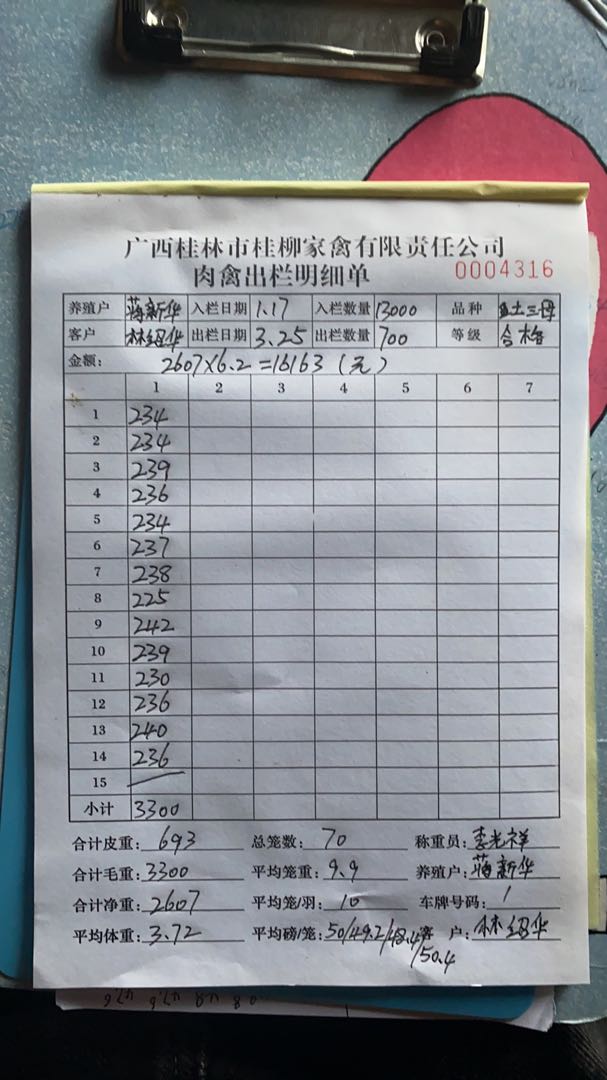 广西桂林市桂柳家禽有限责任公司
肉禽出栏明细单 0004316
养殖户 蒋新华 入栏日期 1.17 入栏数量 13000 品种 土三母
客户 林绍华 出栏日期 3.25 出栏数量 700 等级 合格
金额: 2607×6.2=16163（元）
1 2 3 4 5 6 7
1 234
2 234
3 239
4 236
5 234
6 237
7 238
8 225
9 242
10 239
11 230
12 236
13 240
14 236
15
小计 3300
合计皮重: 693 总笼数: 70 称重员: 李光祥
合计毛重: 3300 平均笼重: 9.9 养殖户: 蒋新华
合计净重: 2607 平均笼/羽: 10 车牌号码: /
平均体重: 3.72 平均磅/笼: 50/49.2/48.4 客户: 林绍华
/50.4